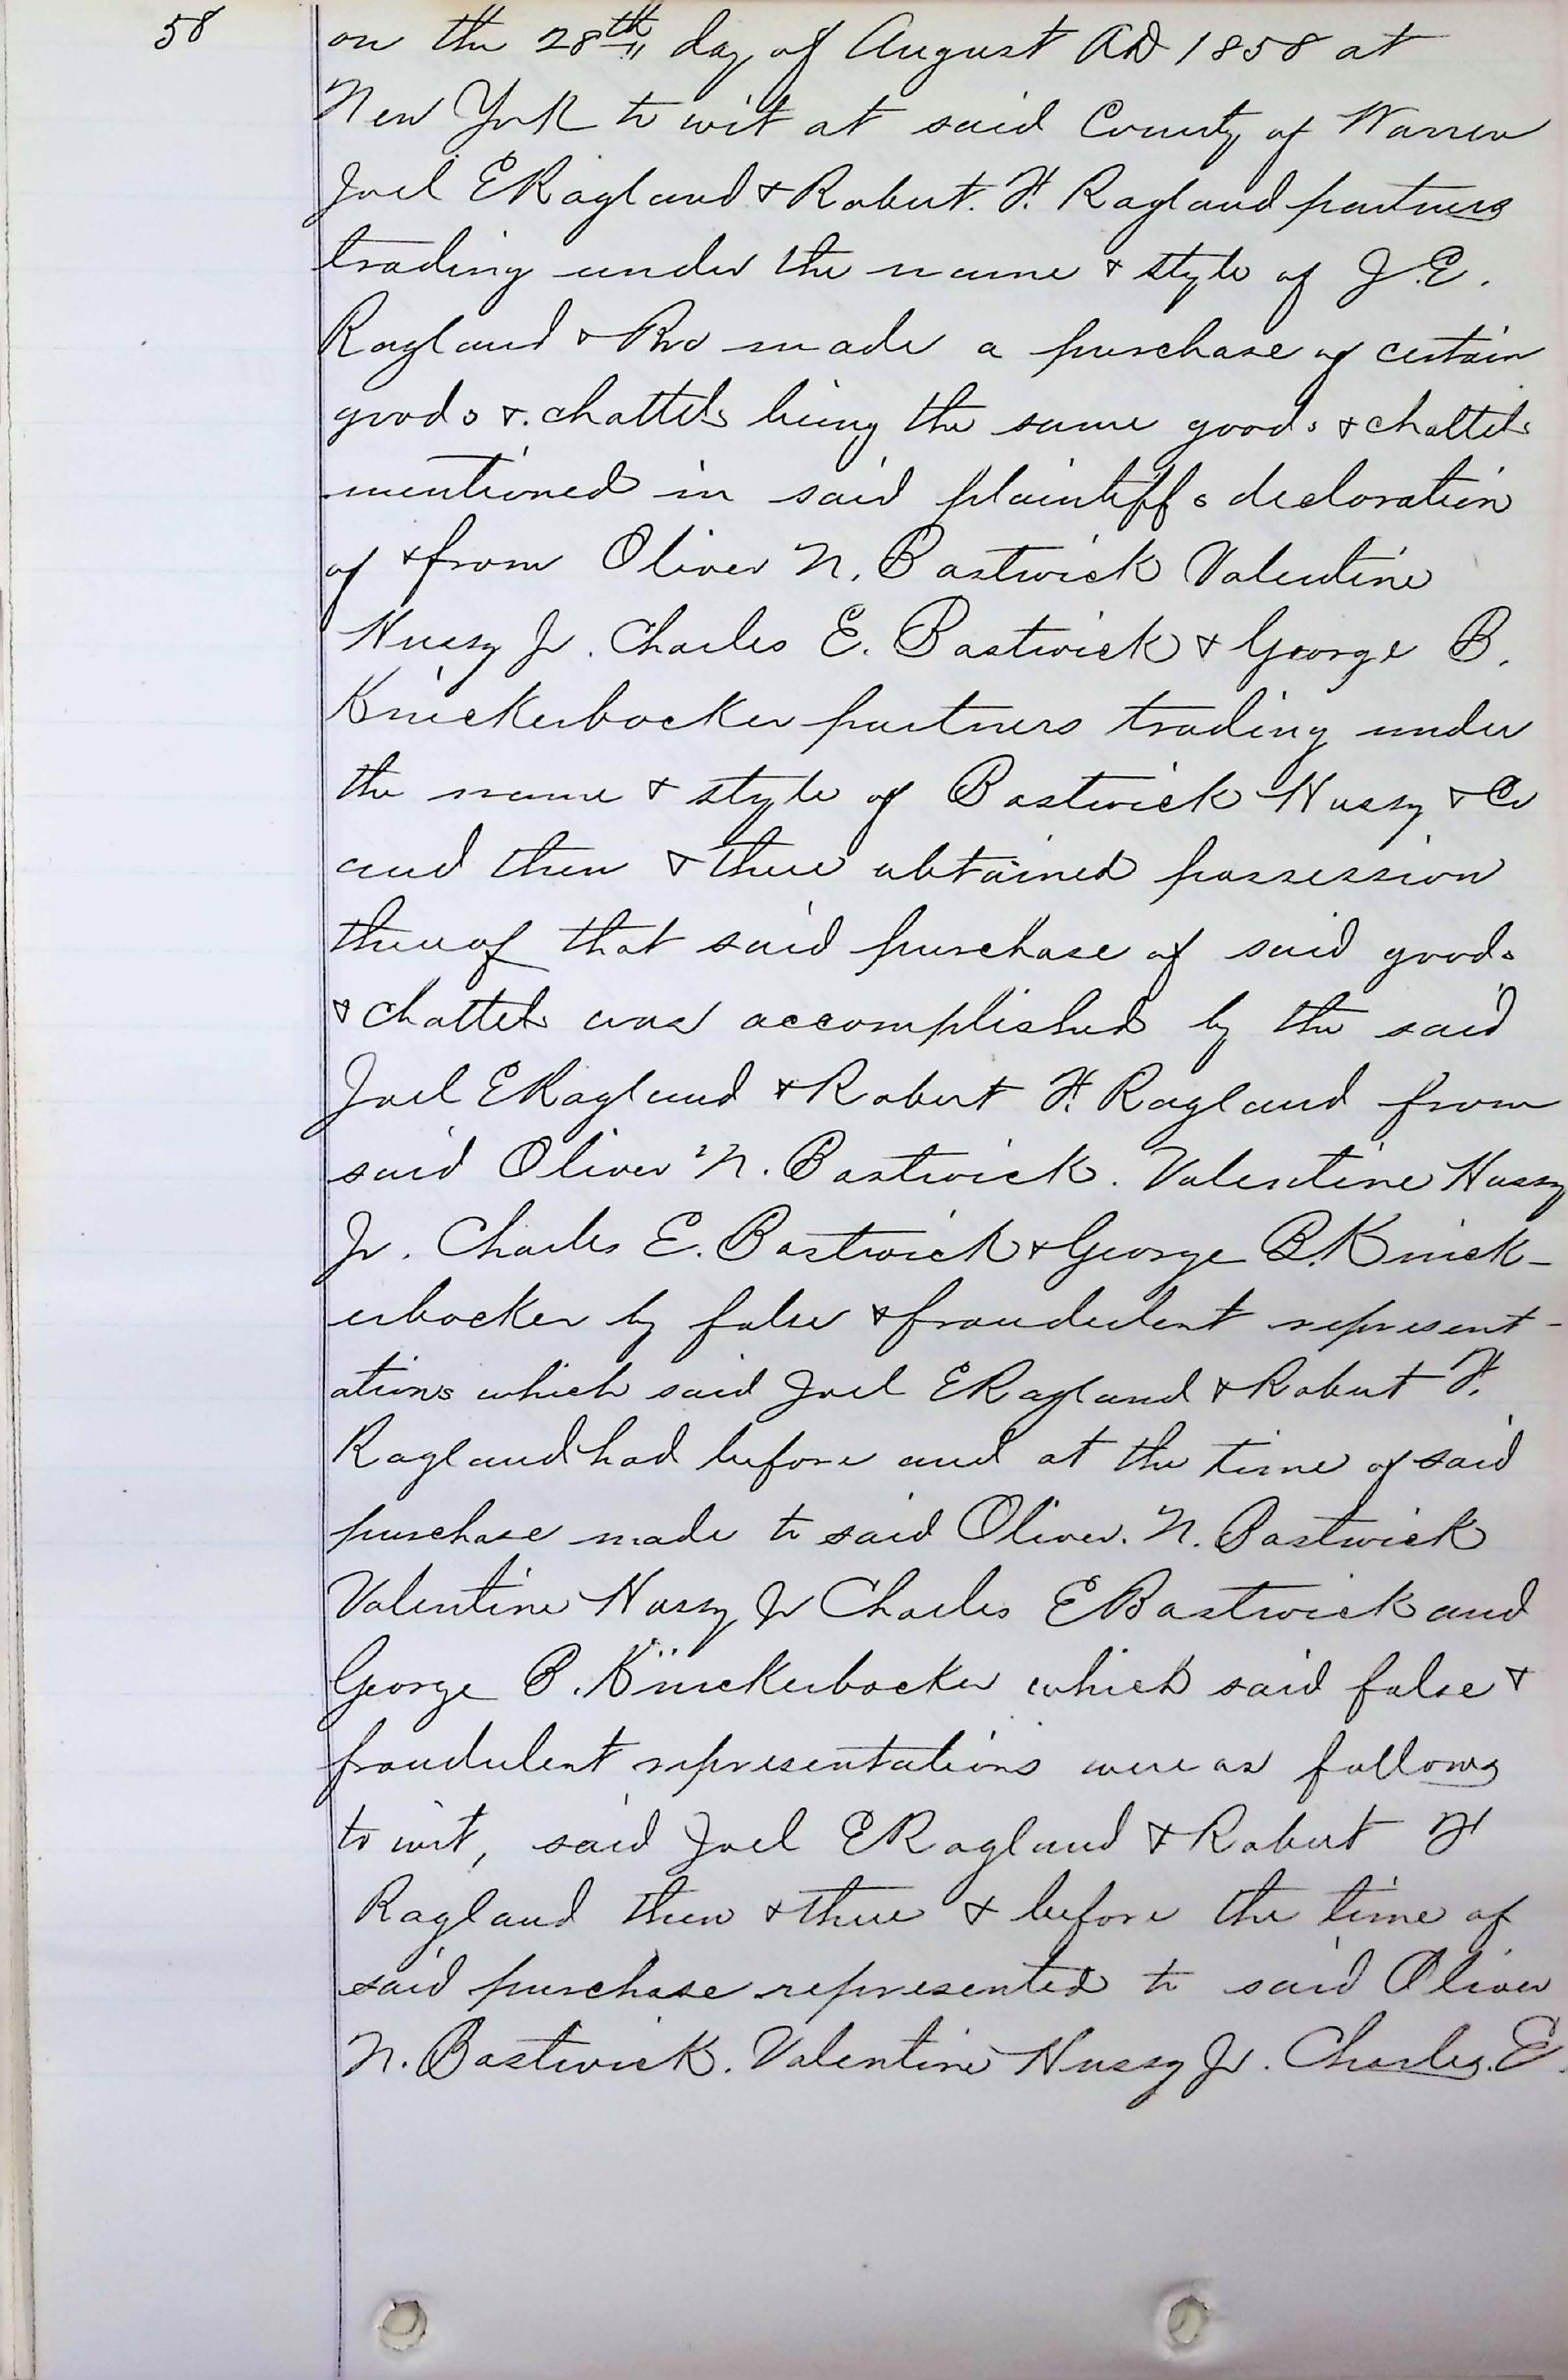 58
on the 28th day of August AD 1858 at
New York to wit at said County of Warren
Joel E Ragland & Robert. F. Ragland partners
trading under the name & style of J.E.
Ragland & Bro made a purchase of certain
goods &. chattels being the same goods & chattels
mentioned in said plaintiffs decloration
of & from Oliver N. Bastwick Valentine
Hussy Jr. Charles E. Bastwick & George B.
Knickerbocker partners trading under
the name & style of Bastwick Hussy & Co
and then & there obtained possession
thereof that said purchase of said goods
& chattels was accomplished by the said
Joel E Ragland & Robert F. Ragland from
said Oliver N. Bastwick. Valentine Hussy
Jr. Charles E. Bastwick & George B. Knick-
erbocker by false & fraudulent represent-
ations which said Joel E Ragland & Robert F.
Ragland had before and at the time of said
purchase made to said Oliver. N. Bastwick
Valentine Hussy Jr Charles E Bastwick and
George B. Knickerbocker which said false &
fraudulent representations were as follows
to wit, said Joel E Ragland & Robert F
Ragland then & there & before the time of
said purchase represented to said Oliver
N. Bastwick. Valentine Hussy Jr. Charles. E.